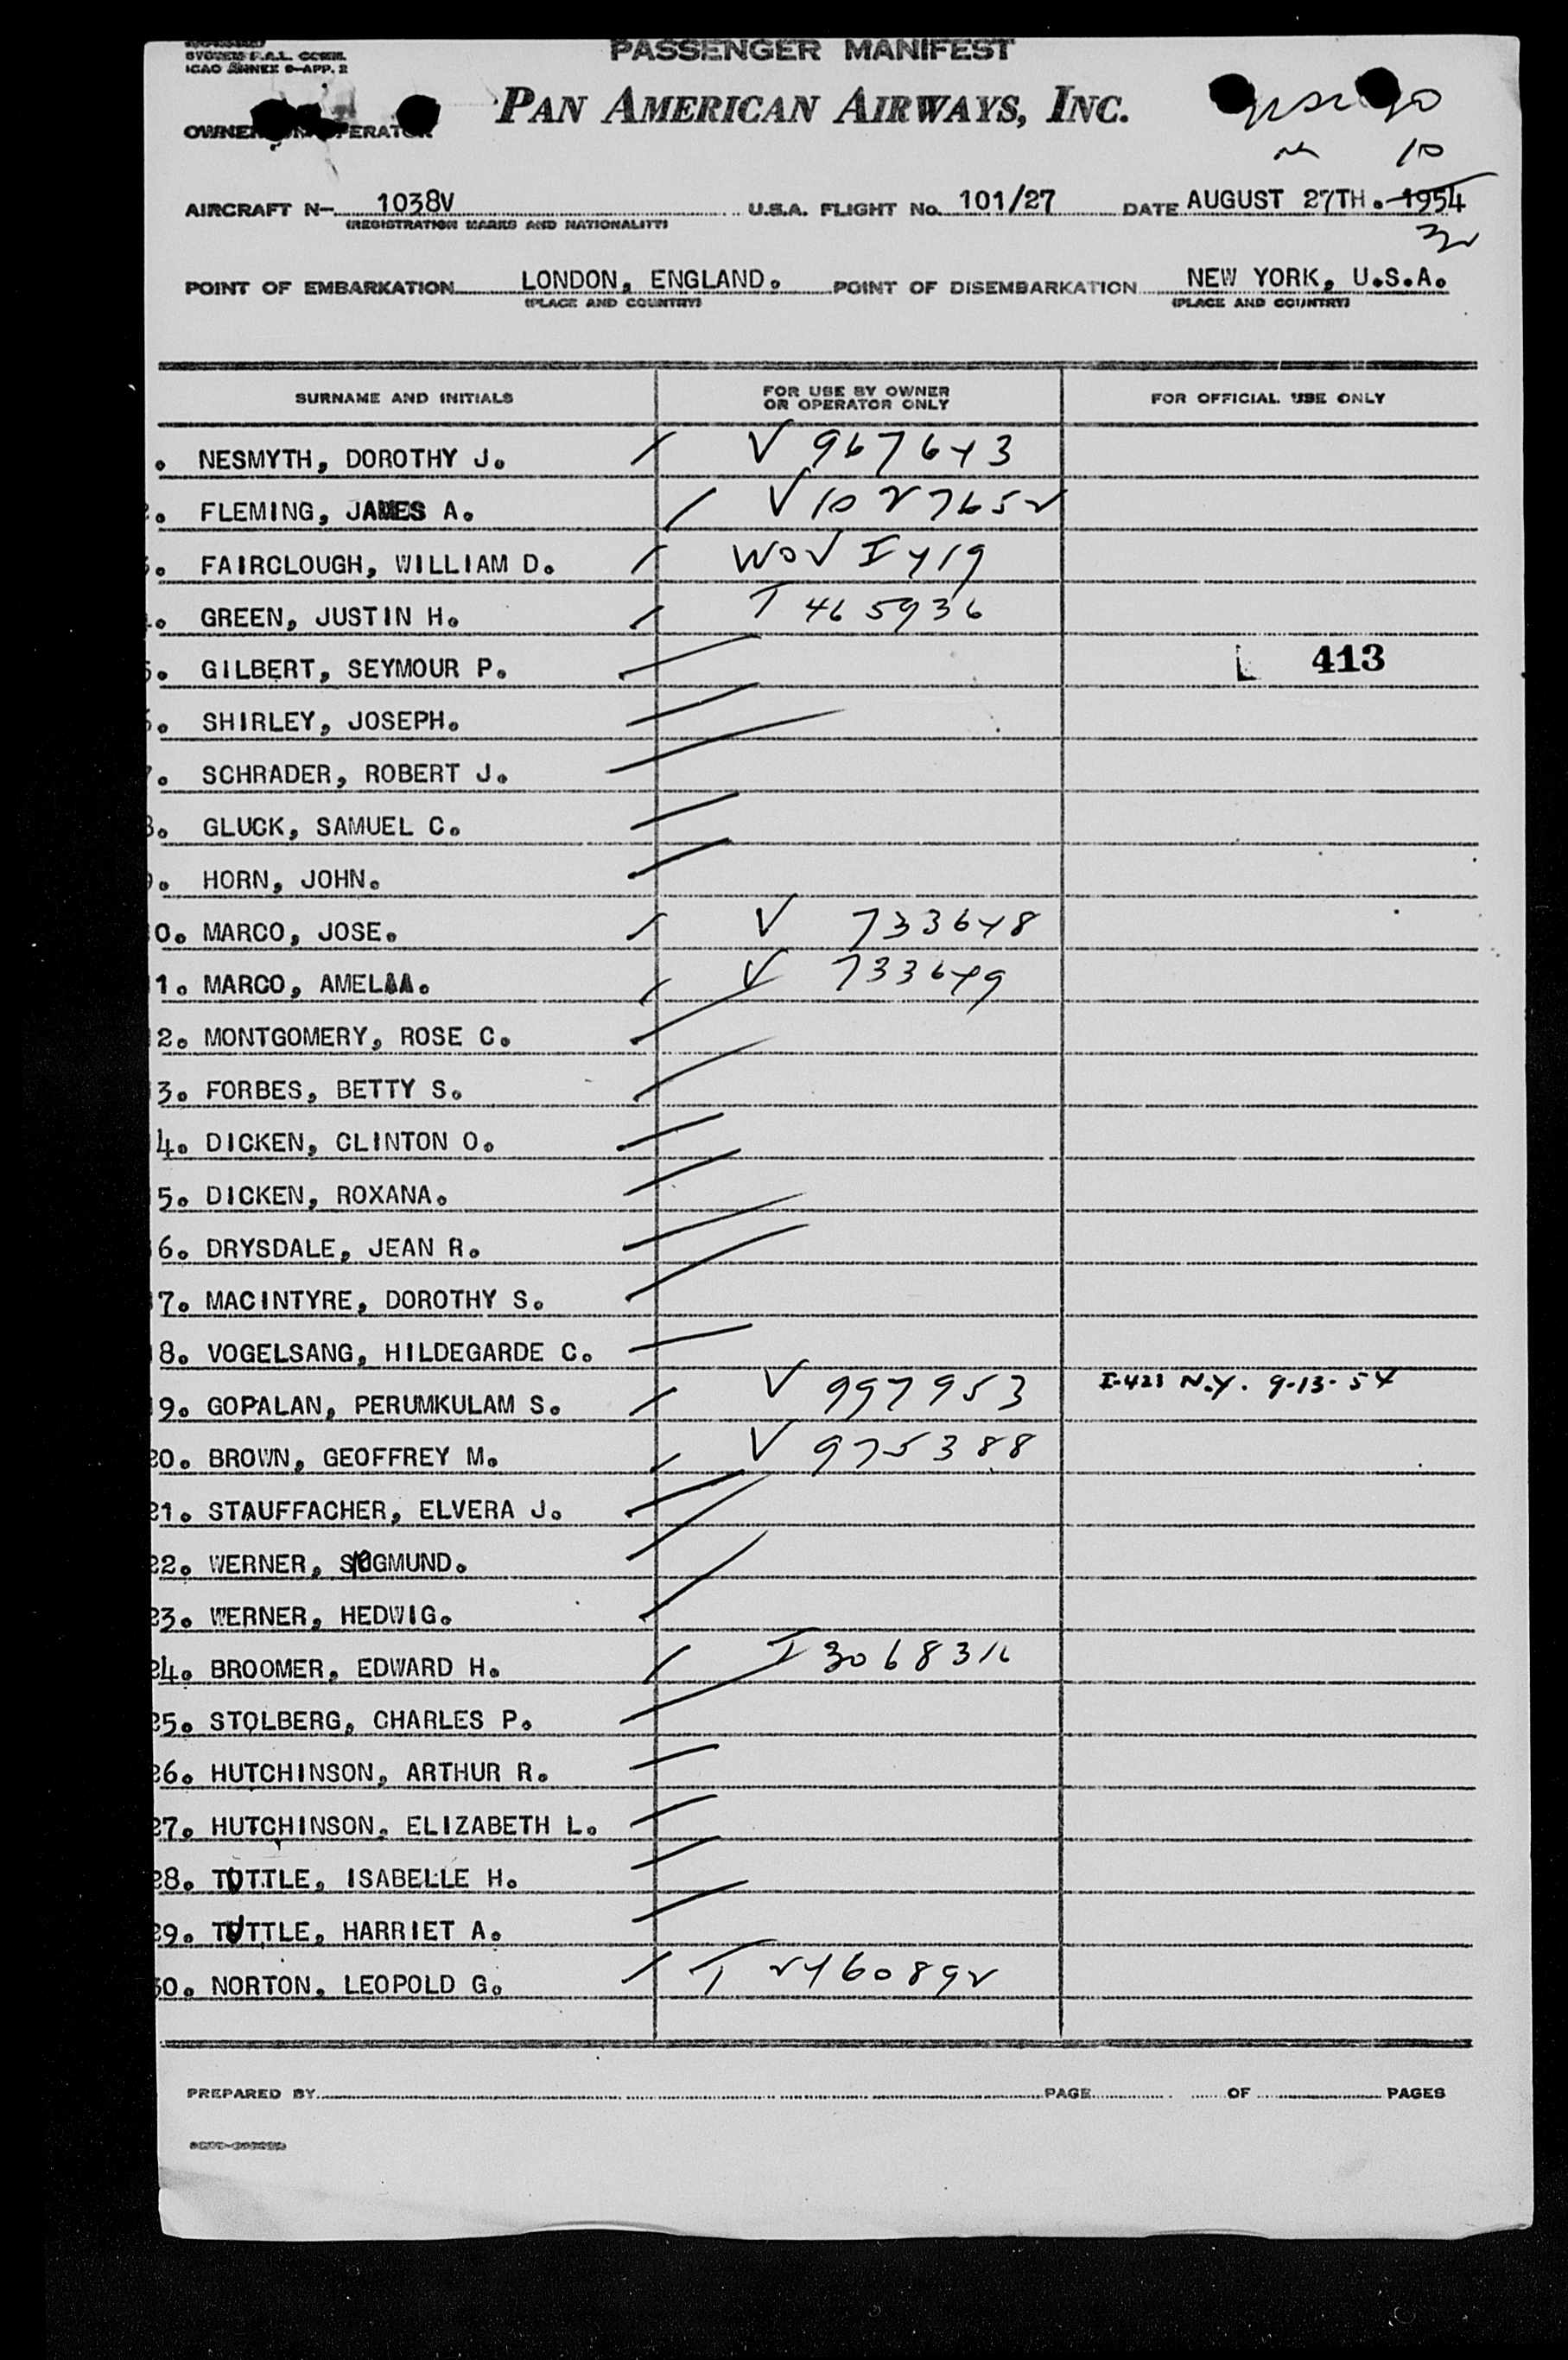 PASSENGER MANIFEST
ICAO ANNEX 9-APP. 2
PAN AMERICAN AIRWAYS, INC.
10
AIRCRAFT N- 1038V U.S.A. FLIGHT No. 101/27 DATE AUGUST 27TH. 1954
(REGISTRATION MARKS AND NATIONALITY)
POINT OF EMBARKATION LONDON, ENGLAND. POINT OF DISEMBARKATION NEW YORK, U.S.A.
(PLACE AND COUNTRY) (PLACE AND COUNTRY)
SURNAME AND INITIALS FOR USE BY OWNER OR OPERATOR ONLY FOR OFFICIAL USE ONLY
. NESMYTH, DOROTHY J. V 967643
. FLEMING, JAMES A. V 1027652
. FAIRCLOUGH, WILLIAM D. WOV I 419
. GREEN, JUSTIN H. T 465936
5. GILBERT, SEYMOUR P. L 413
. SHIRLEY, JOSEPH.
. SCHRADER, ROBERT J.
8. GLUCK, SAMUEL C.
. HORN, JOHN.
0. MARCO, JOSE. V 733648
1. MARCO, AMELIA. V 733649
2. MONTGOMERY, ROSE C.
3. FORBES, BETTY S.
4. DICKEN, CLINTON O.
5. DICKEN, ROXANA.
6. DRYSDALE, JEAN R.
7. MACINTYRE, DOROTHY S.
8. VOGELSANG, HILDEGARDE C.
9. GOPALAN, PERUMKULAM S. V 997953 I-421 N.Y. 9-13-54
20. BROWN, GEOFFREY M. V 975388
21. STAUFFACHER, ELVERA J.
22. WERNER, SIGMUND.
23. WERNER, HEDWIG.
24. BROOMER, EDWARD H. I 306831
25. STOLBERG, CHARLES P.
26. HUTCHINSON, ARTHUR R.
27. HUTCHINSON, ELIZABETH L.
28. TUTTLE, ISABELLE H.
29. TUTTLE, HARRIET A.
30. NORTON, LEOPOLD G. T 2460892
PREPARED BY PAGE OF PAGES